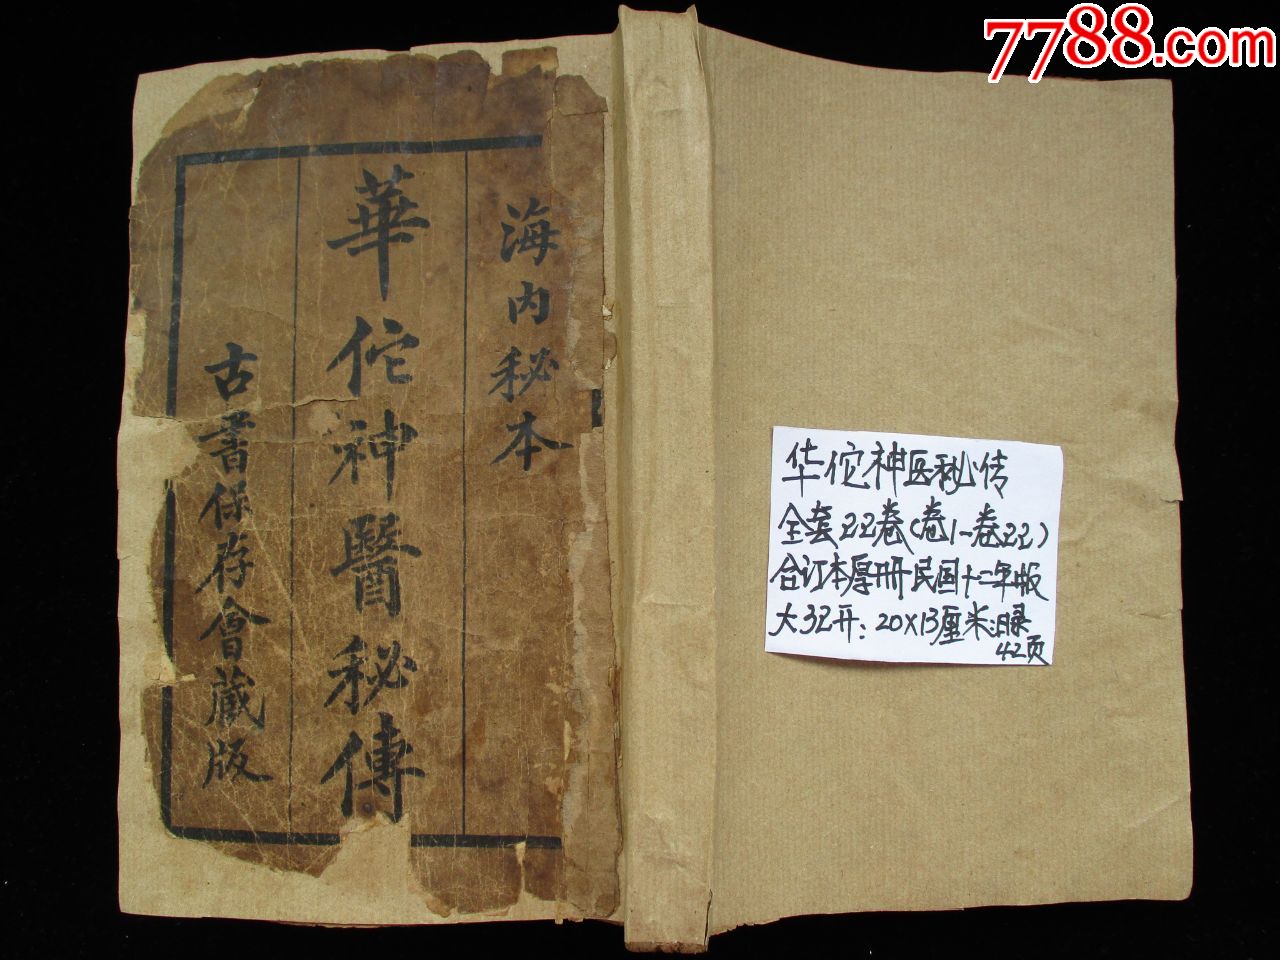 7788.com
海内秘本
華佗神醫秘傳
古書保存會藏版
华佗神医秘传
全套22卷(卷1-卷22)
合订本厚册民国十二年版
大32开:20X13厘米:目录
42页